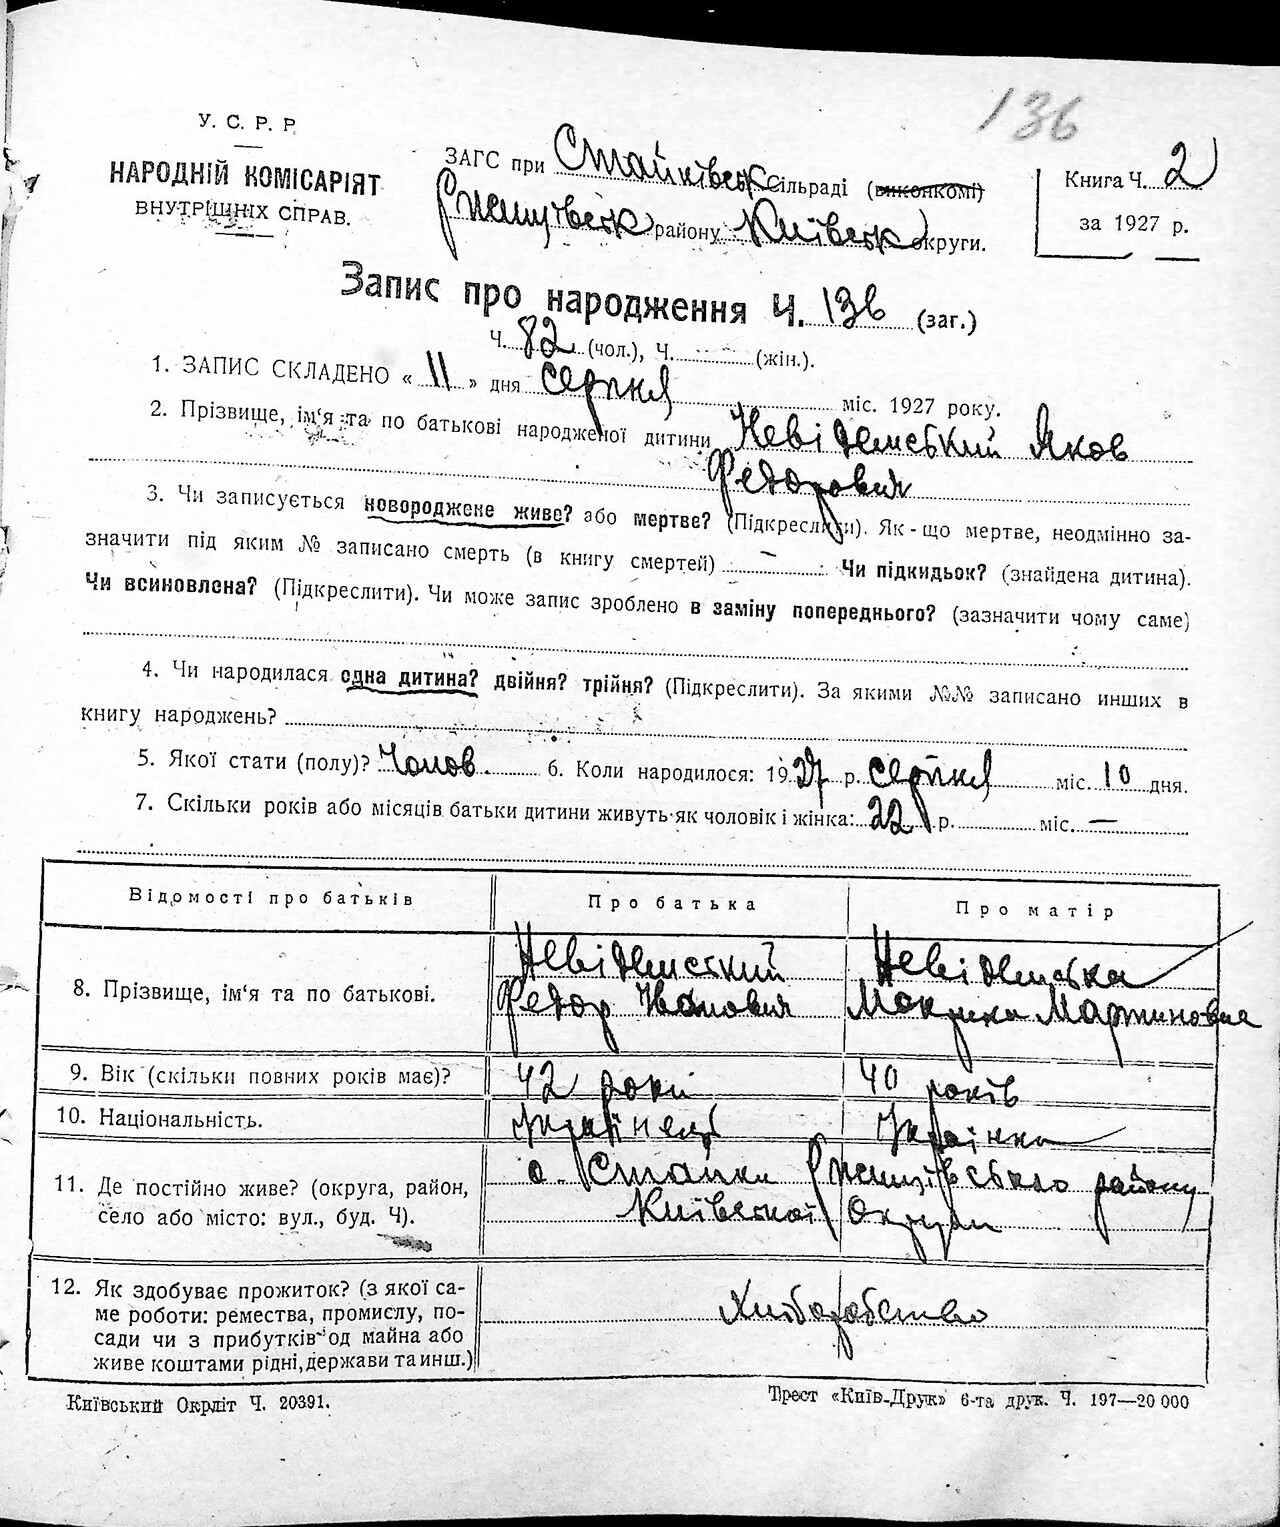 136
У. С. Р. Р.
НАРОДНІЙ КОМІСАРІЯТ
ВНУТРІШНІХ СПРАВ.
ЗАГС при Стайківськ сільраді (виконкомі)
Ржищівськ району Київськ округи.
Книга Ч. 2
за 1927 р.
Запис про народження Ч. 136 (заг.)
Ч. 82 (чол.), Ч. (жін.).
1. ЗАПИС СКЛАДЕНО « 11 » дня серпня міс. 1927 року.
2. Прізвище, ім‘я та по батькові народженої дитини Невідемський Яков
Федорович
3. Чи записується новороджене живе? або мертве? (Підкреслити). Як-що мертве, неодмінно за-
значити під яким № записано смерть (в книгу смертей) — Чи підкидьок? (знайдена дитина).
Чи всиновлена? (Підкреслити). Чи може запис зроблено в заміну попереднього? (зазначити чому саме)
4. Чи народилася одна дитина? двійня? трійня? (Підкреслити). За якими №№ записано инших в
книгу народжень?
5. Якої стати (полу)? Чолов. 6. Коли народилося: 1927 р. серпня міс. 10 дня.
7. Скільки років або місяців батьки дитини живуть як чоловік і жінка: 22 р. міс. —
Відомості про батьків Про батька Про матір
8. Прізвище, ім‘я та по батькові.
Невідемський Невідемська
Федор Іванович Мокрина Мартиновна
9. Вік (скільки повних років має)? 42 роки 40 років
10. Національність. Українець Українка
11. Де постійно живе? (округа, район,
село або місто: вул., буд. Ч).
с. Стайки Ржищівського району
Київської Округи
12. Як здобуває прожиток? (з якої са-
ме роботи: ремества, промислу, по-
сади чи з прибутків од майна або
живе коштами рідні, держави та инш.)
Хліборобство
Київський Окрліт Ч. 20391.
Трест «Київ-Друк» 6-та друк. Ч. 197—20 000